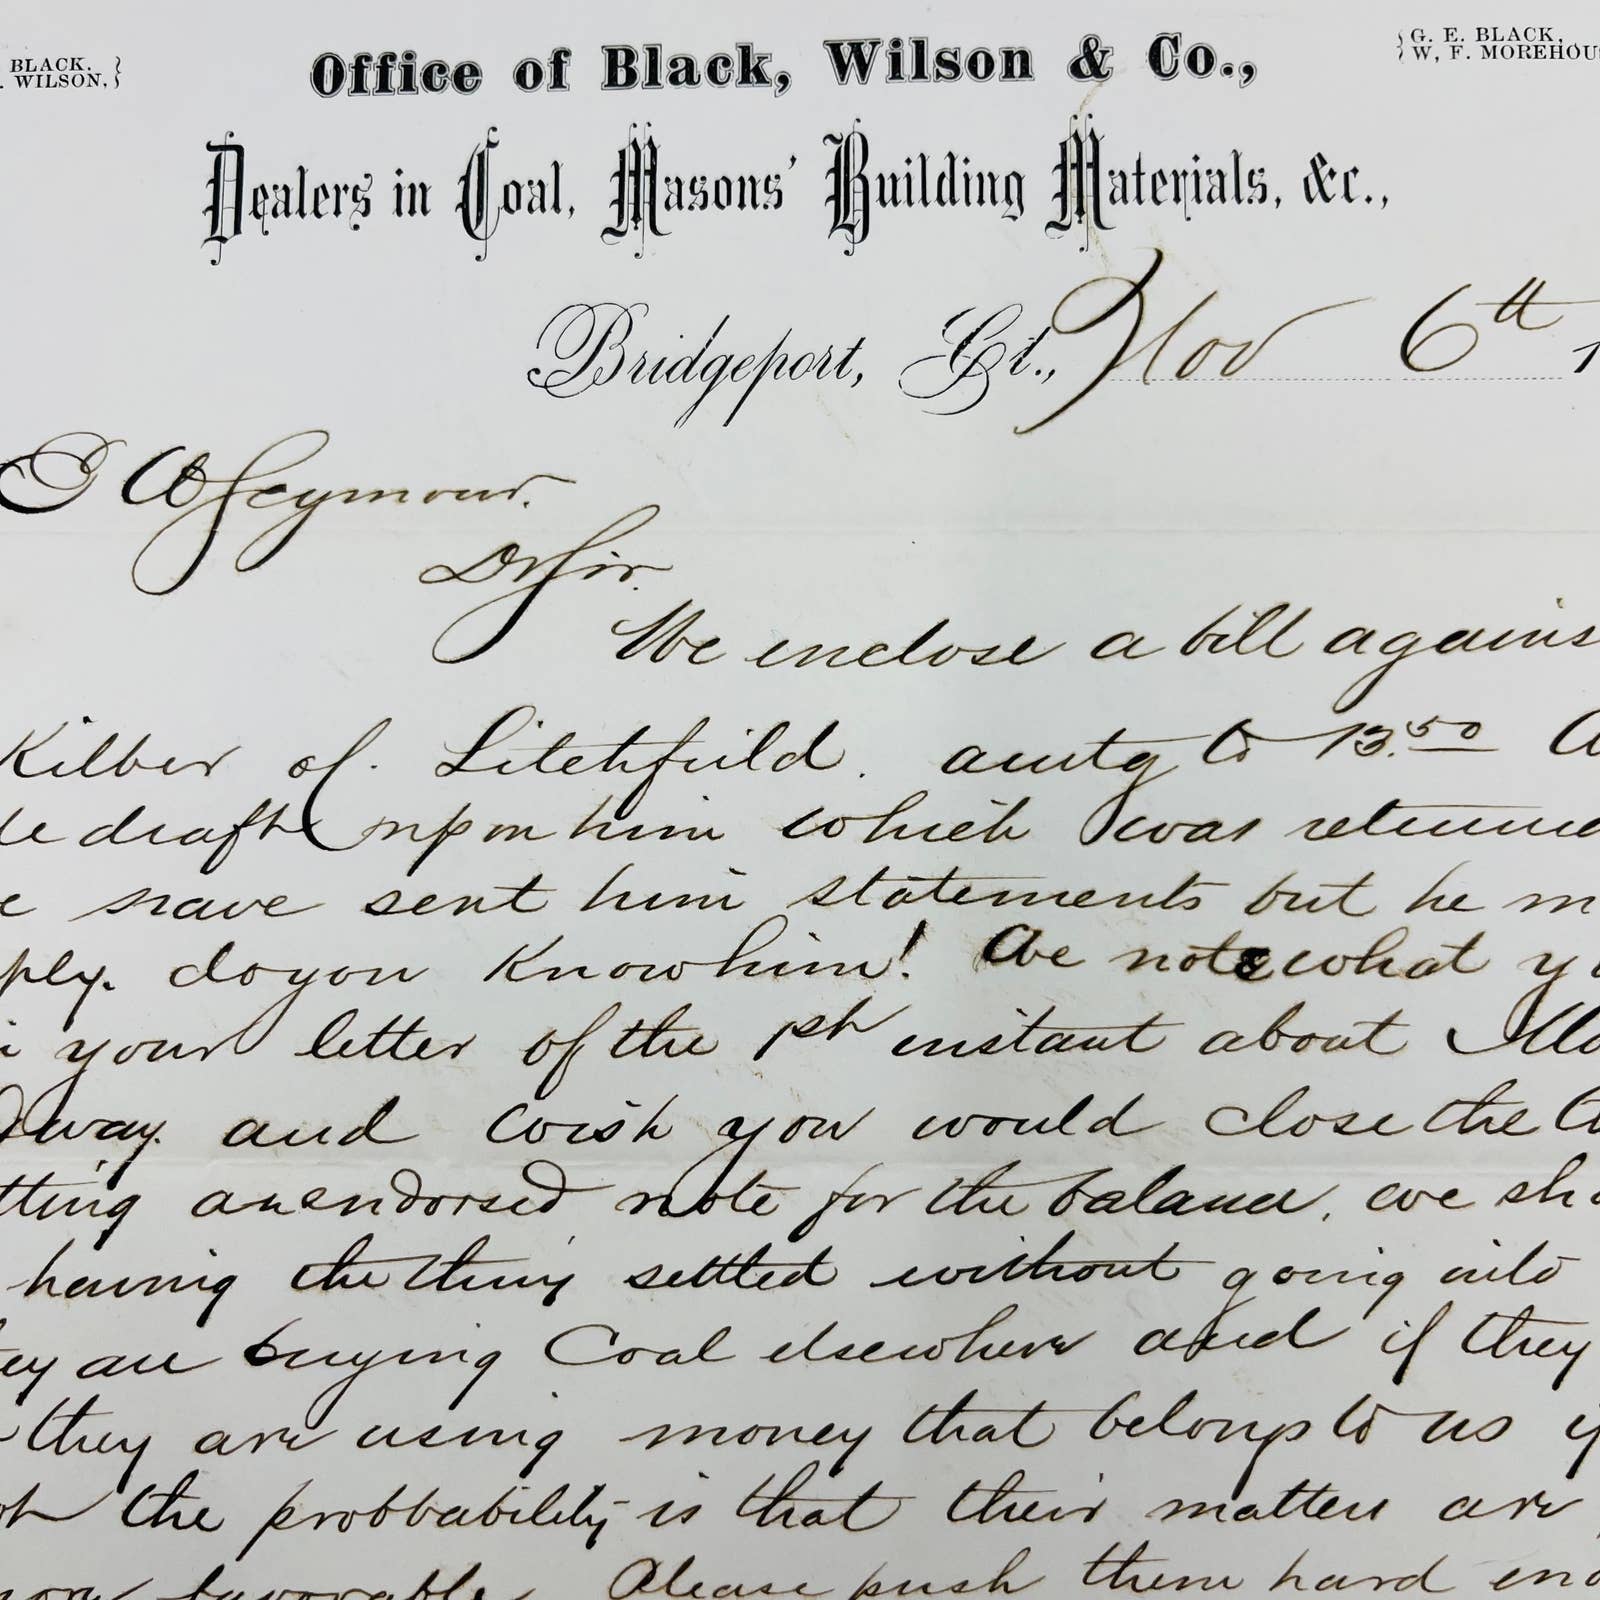 BLACK.
WILSON,
Office of Black, Wilson & Co.,
G. E. BLACK,
W, F. MOREHOU
Dealers in Coal, Masons' Building Materials, &c.,
Bridgeport, Ct., Nov 6th 1
E A Seymour.
Dr Sir.
We enclose a bill agains
Kilber of. Litchfeild. amtg to 13.50
de draft upon him which was returne
e have sent him statements but he m
ply. do you Know him! We note what y
your letter of the 1st instant about
dway. and wish you would close the
tting an endorsed note for the balance, we sh
having the thing settled without going into
ey are buying Coal elsewhere and if they
they are using money that belongs to us
the probbability is that their matters are
more favorable. Please push them hard eno